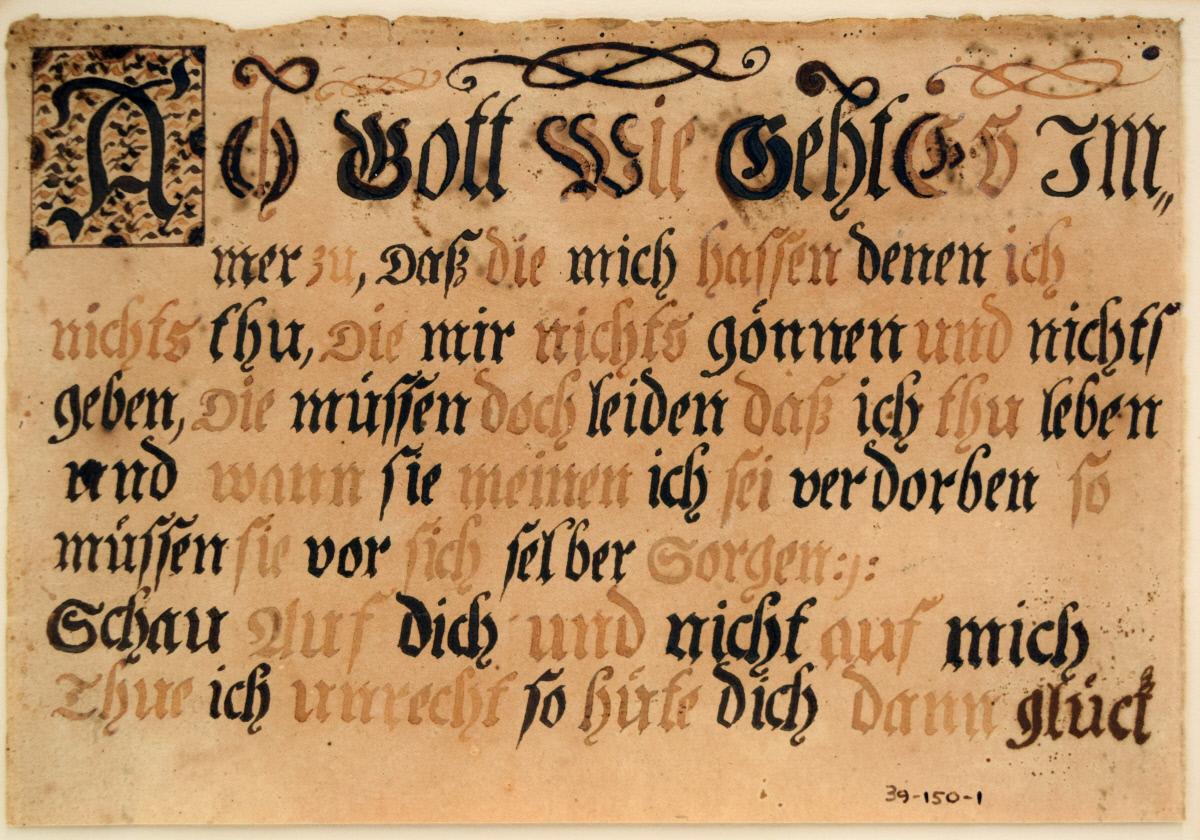 Ach Gott Wie Geht Es Im„
mer zu, Daß die mich hassen denen ich
nichts thu, Die mir nichts gönnen und nichts
geben, Die müssen doch leiden daß ich thu leben
und wann sie meinen ich sei verdorben so
müssen sie vor sich selber Sorgen:,:
Schau Auf dich und nicht auf mich
Thue ich unrecht so hüte dich dann glück
39-150-1